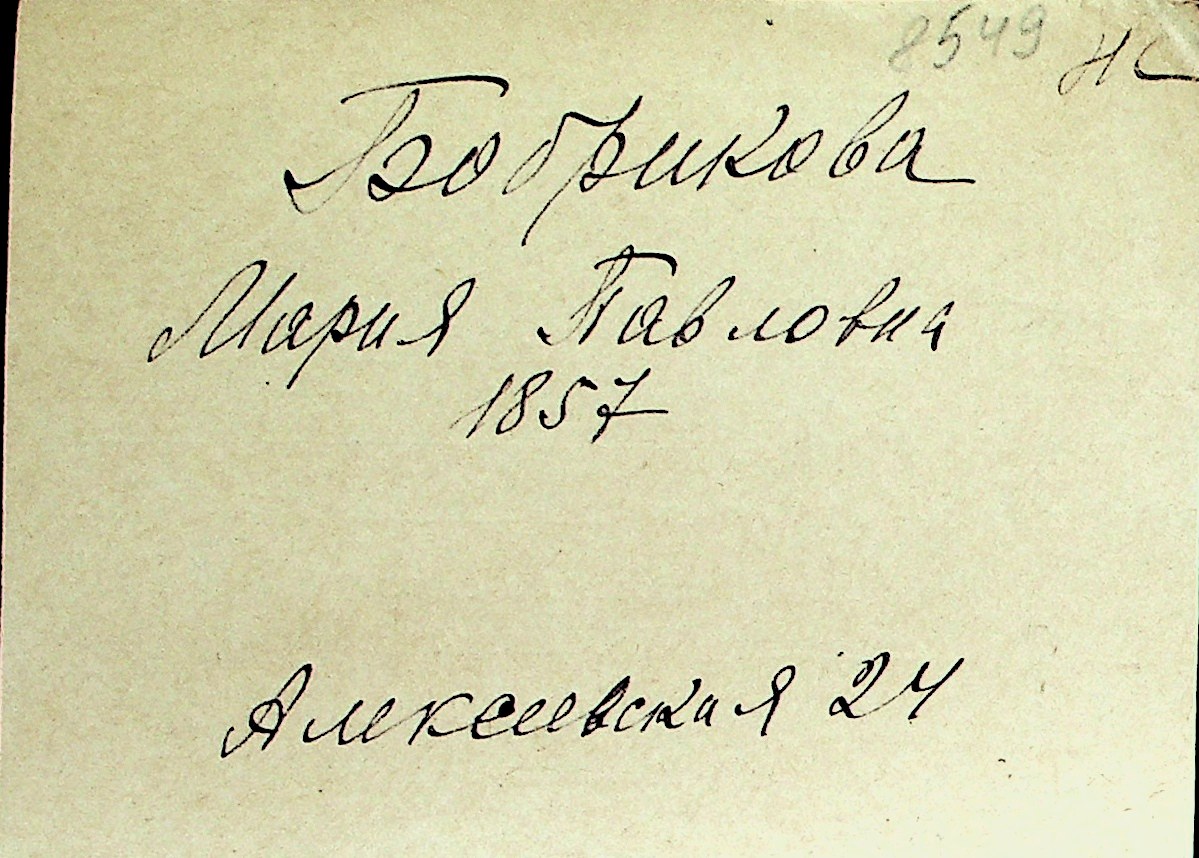 8549 НС
Бобрикова
Мария Павловна
1857
Алексеевская 24